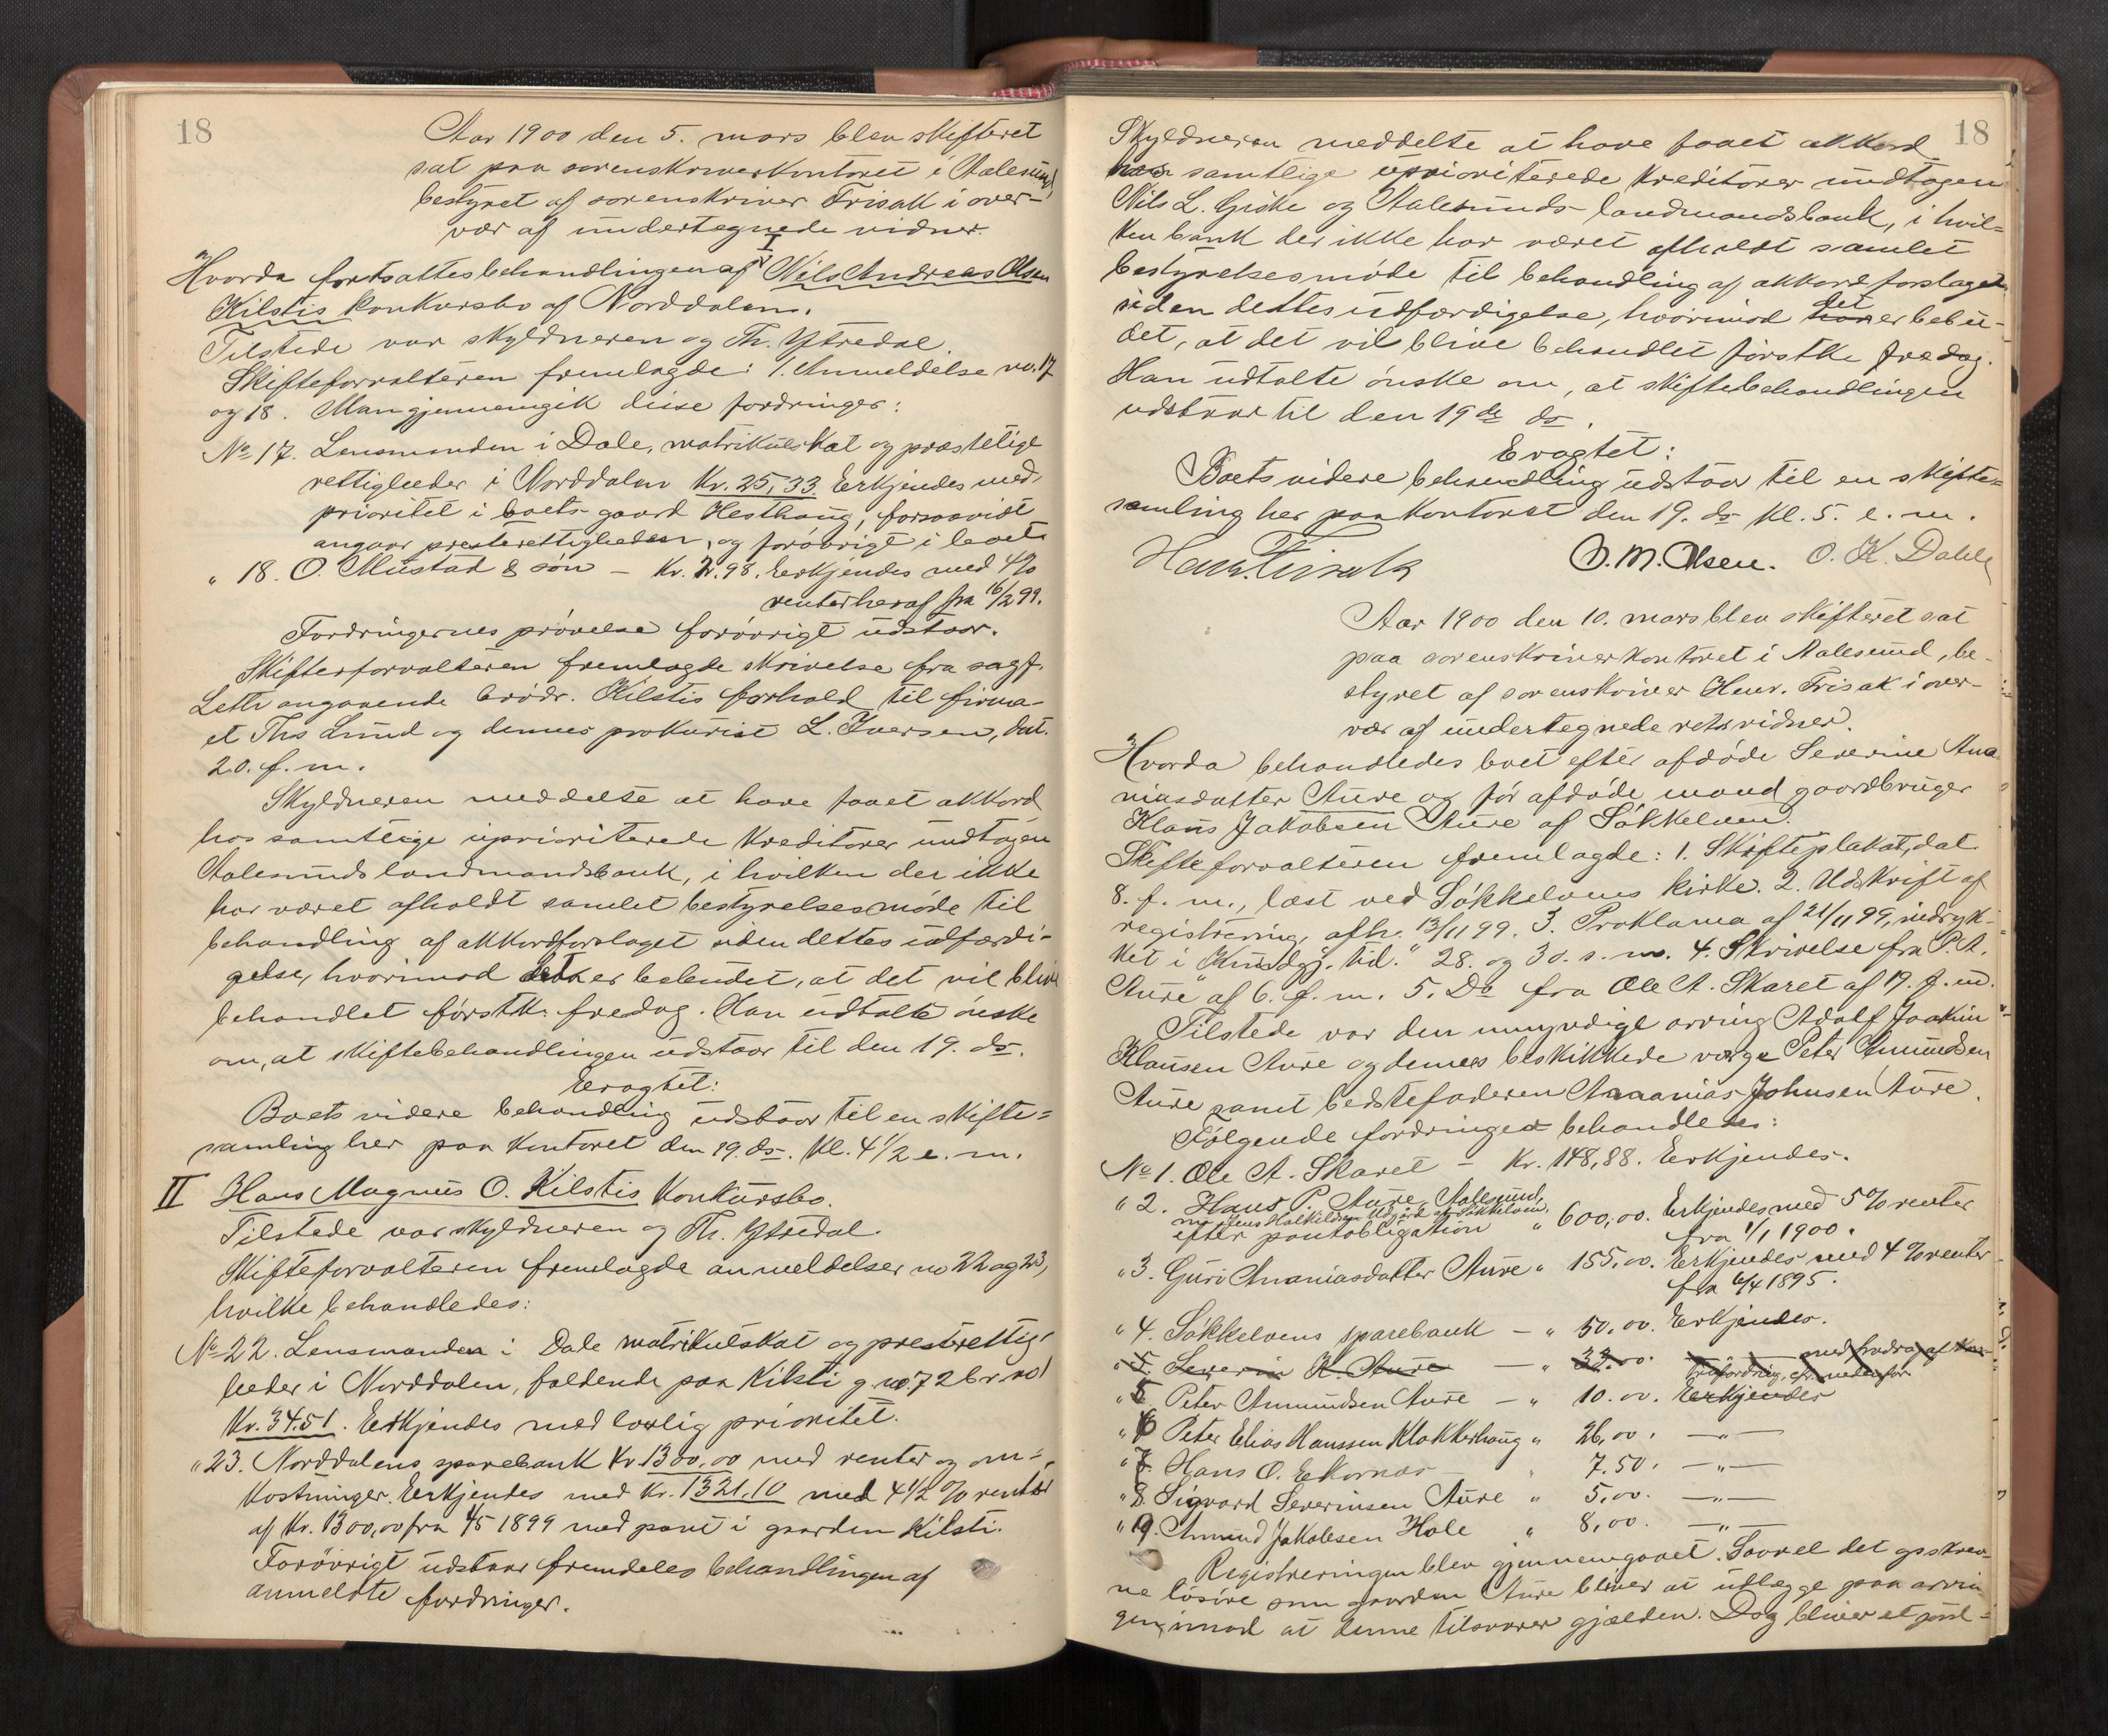 18
Aar 1900 den 5. mars blev skifteret
sat paa sorenskriverkontoret i Aalesund,
bestyret af sorenskriver Frisak i over-
vær af undertegnede vidner.
I
Hvorda fortsattes behandlingen af Nils Andreas Olsen
Kilstis konkursbo af Norddalen.
Tilstede var skyldneren og Th. Ytredal.
Skifteforvalteren fremlagde: 1. Anmeldelse no. 17
og 18. Man gjennemgik disse fordringer:
No 17. Lensmanden i Dale, matrikulskat og præstelige
rettigheder i Norddalen Kr. 25,33 Erkjendes med
prioritet i boets gaard Hesthaug, forsaavidt
angaar presterettigheden, og forøvrigt i boet.
" 18. O. Mustad & søn – Kr. 2.98. Erkjendes med 4%
renter heraf fra 16/2 99.
Fordringernes prøvelse forøvrigt udstaar.
Skifteforvalteren fremlagde skrivelse fra sagf.
Leth angaaende brødr. Kilstis forhold til firma-
et Ths Lund og dennes prokurist L. Iversen, dat.
20. f. m.
Skyldneren meddelte at have faaet akkord
hos samtlige uprioriterede kreditorer undtagen
Aalesunds landmandsbank, i hvilken der ikke
har været afholdt samlet bestyrelsesmøde til
behandling af akkordforslaget siden dettes udfærdi-
gelse, hvorimod det er bebudet, at det vil blive
behandlet førstk. fredag. Han udtalte ønske
om, at skiftebehandlingen udstaar til den 19. ds.
Eragtet:
Boets videre behandling udstaar til en skifte=
samling her paa kontoret den 19. ds. Kl. 4 1/2 e. m.
II Hans Magnus O. Kilstis Konkursbo.
Tilstede var skyldneren og Th. Ytredal.
Skifteforvalteren fremlagde anmeldelser no 22 og 23,
hvilke behandledes:
No 22. Lensmanden i Dale matrikulskat og presterettig-
heder i Norddalen, faldende paa Kilsti g. no. 72 br. no 1
Kr. 34.51. Erkjendes med lovlig prioritet.
" 23. Norddalens sparebank Kr. 1300,00 med renter og om=
kostninger. Erkjendes med Kr. 1321,10 med 4 1/2 % renter
af Kr. 1300,00 fra 4/5 1899 med pant i gaarden Kilsti.
Forøvrigt udstaar fremdeles behandlingen af
anmeldte fordringer.
18
Skyldneren meddelte at have faaet akkord
hos samtlige uprioriterede kreditorer undtagen
Nils L. Giske og Aalesunds landmandsbank, i hvil=
ken bank der ikke har været afholdt samlet
bestyrelsesmøde til behandling af akkordforslaget
siden dettes udfærdigelse, hvorimod det er bebu-
det, at det vil blive behandlet førstk. fredag.
Han udtalte ønske om, at skiftebehandlingen
udstaar til den 19de ds.
Eragtet:
Boets videre behandling udstaar til en skifte=
samling her paa kontoret den 19. ds Kl. 5. e. m.
Henr. Frisak O. M. Olsen. O. K. Dahle
Aar 1900 den 10. mars blev skifteret sat
paa sorenskriverkontoret i Aalesund, be-
styret af sorenskriver Henr. Frisak i over-
vær af undertegnede retsvidner.
Hvorda behandledes boet efter afdøde Severine Ana-
niasdatter Aure og før afdøde mand gaardbruger
Klaus Jakobsen Aure af Søkkelven.
Skifteforvalteren fremlagde: 1. Skifteplakat, dat.
8. f. m., læst ved Søkkelvens kirke. 2. Udskrift af
registrering, afh. 13/11 99. 3. Proklama af 21/11 99, indryk-
ket i "Kundgj. tid." 28. og 30. s. m. 4. Skrivelse fra P. A.
Aure af 6. f. m. 5. Do fra Ole A. Skaret af 19. f. m.
Tilstede var den umyndige arving Adolf Joakim
Klausen Aure og dennes beskikkede værge Peter Amundsen
Aure samt bedstefaderen Ananias Johnsen Aure.
Følgende fordringer behandledes:
No 1. Ole A. Skaret – Kr. 148,88. Erkjendes.
" 2. Hans P. Aure, Aalesund,
efter pantobligation " 600,00. Erkjendes med 5% renter
fra 1/1 1900.
" 3. Guri Ananiasdatter Aure " 155,00. Erkjendes med 4% renter
fra 6/4 1895.
" 4. Søkkelvens sparebank – " 50,00. Erkjendes.
" 5. Severin K. Aure – " 32.00. – " – med fradrag af
modfordring, cfr. nedenfor
" 5 Peter Amundsen Aure – " 10.00. Erkjendes
" 6 Peter Elias Hanssen Klokkerhaug " 26,00. – " –
" 7. Hans O. Ekornæs " 7.50. – " –
" 8. Sigvard Severinsen Aure " 5,00. – " –
" 9. Amund Jakobsen Hole " 8,00. – " –
Registreringen blev gjennemgaaet. Saavel det opskrev-
ne løsøre som gaarden Aure bliver at udlægge paa arvin-
gen, imod at denne tilsvarer gjælden. Dog bliver et